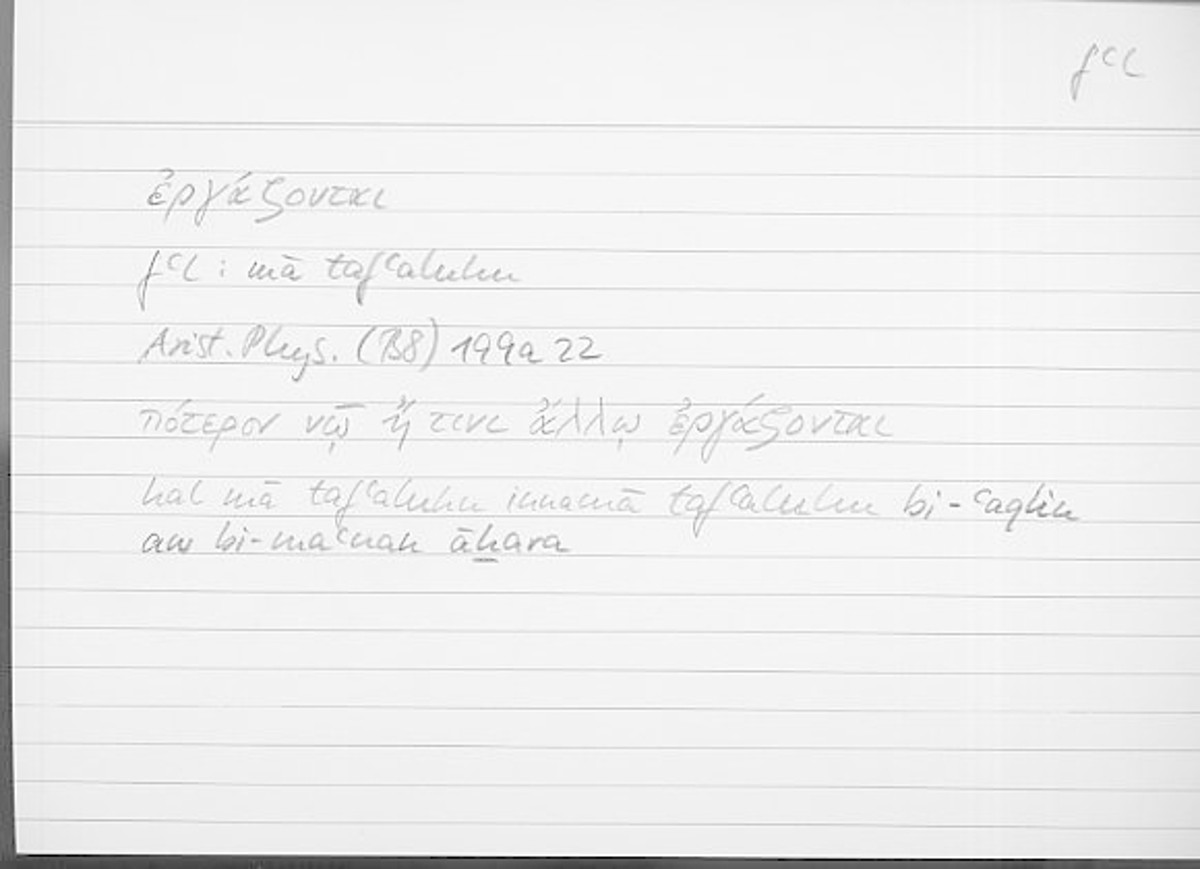 fʿl
ἐργάζονται
fʿl : mā tafʿaluhu
Arist. Phys. (B8) 199a 22
πότερον νῷ ἤ τινι ἄλλῳ ἐργάζονται
hal mā tafʿaluhu innamā tafʿaluhu bi-ʿaqlin
aw bi-maʿnan āḫara